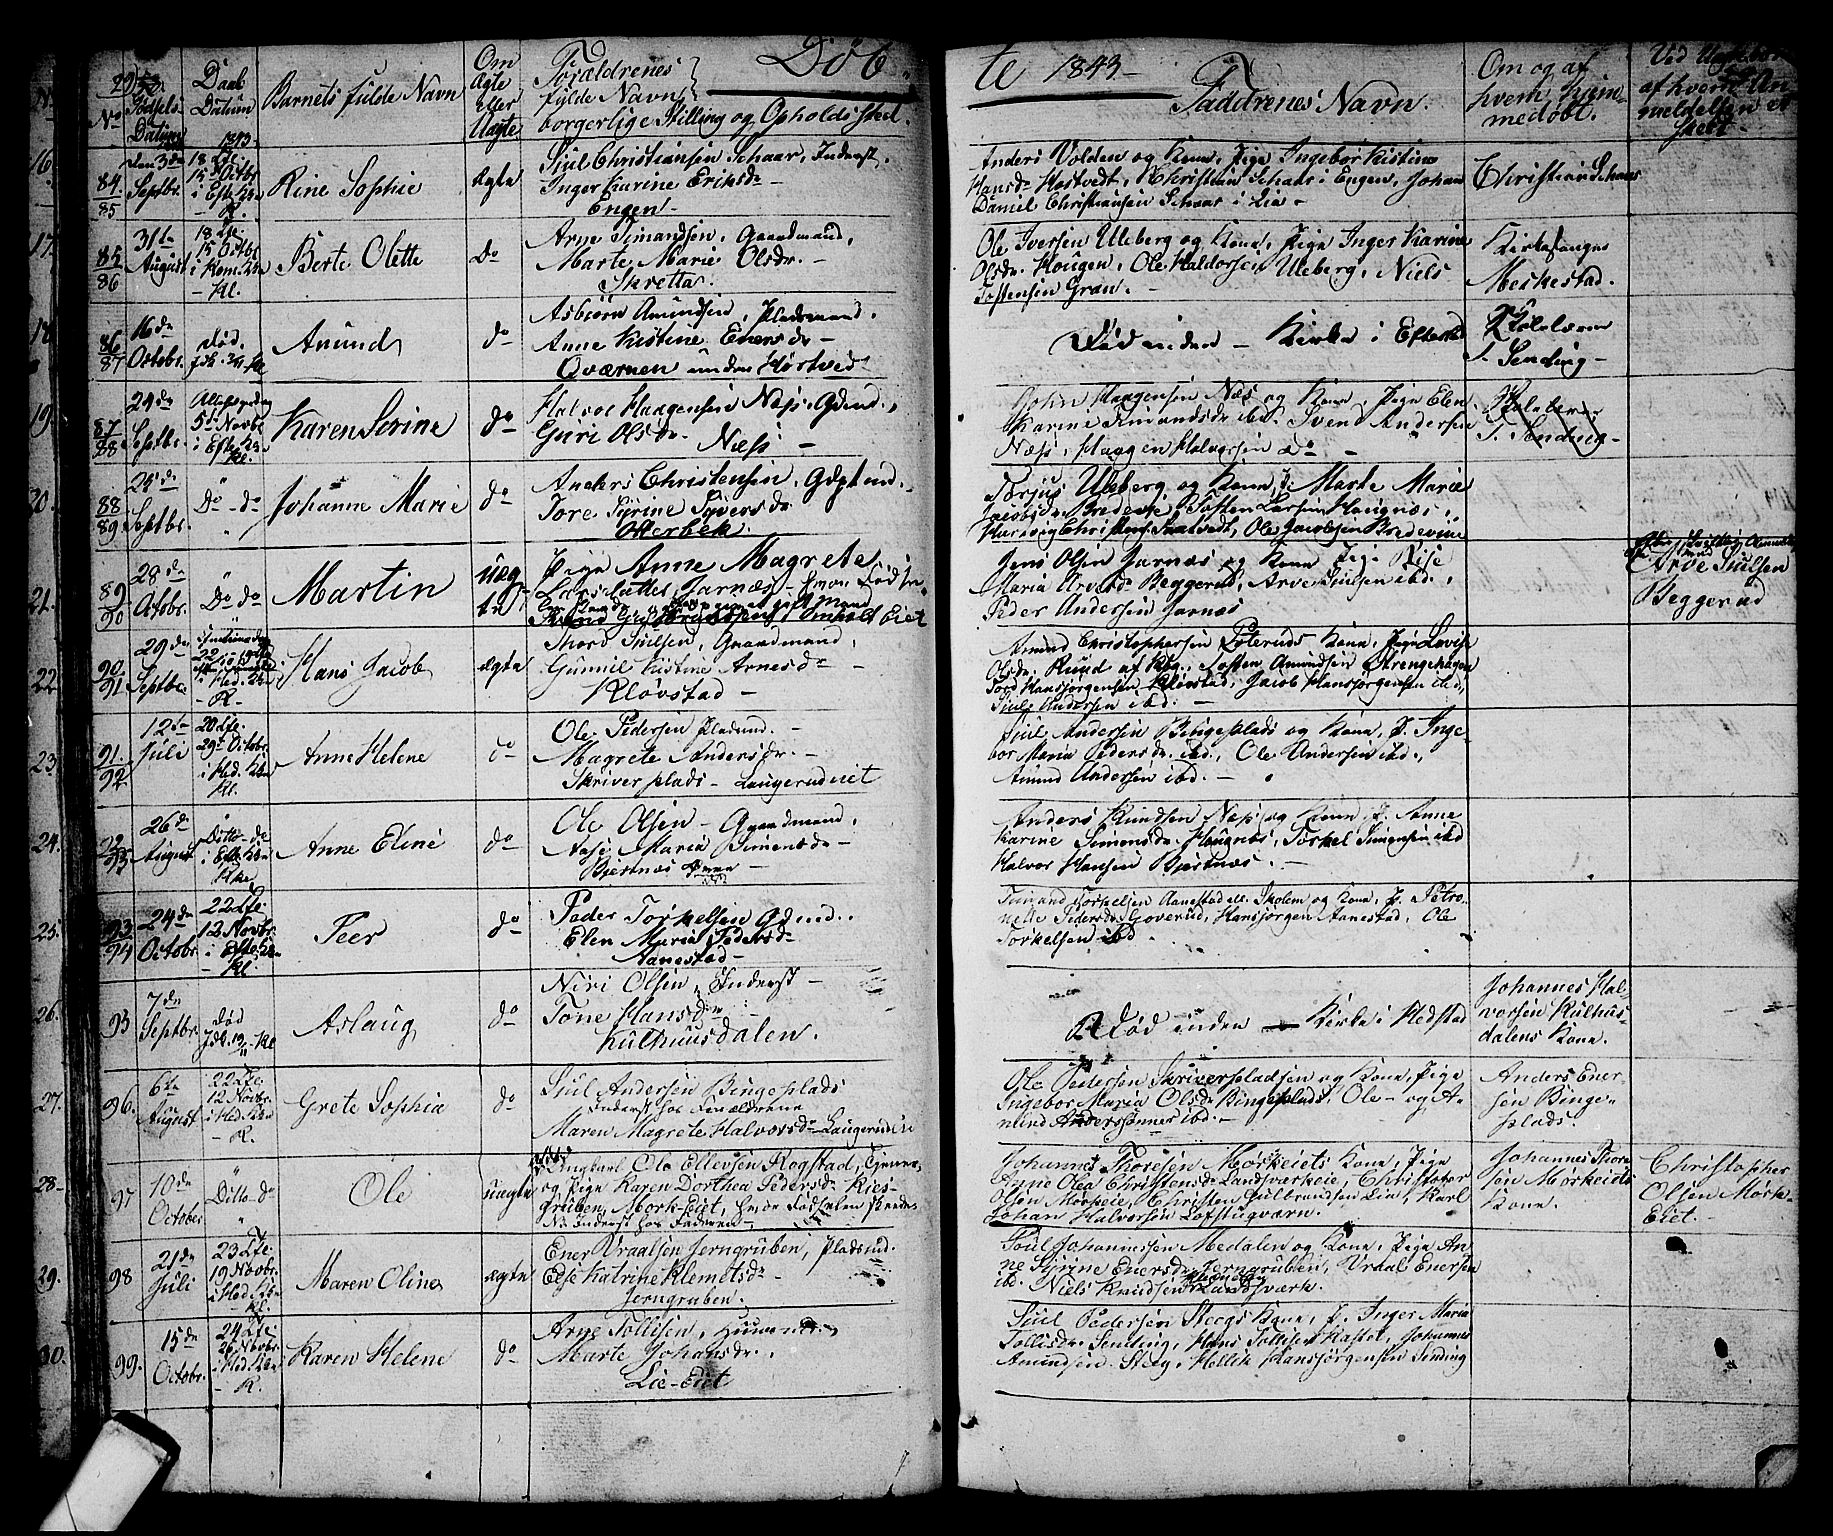 Døb
te 1843
No
Fødsels
Datum
Daab
Datum
1843
Barnets fulde Navn
Om
Ægte
eller
Uægte
Forældrenes
fulde Navn
borgerlige Stilling og Opholdssted.
Faddrenes Navn.
Om og af
hvem hjem-
medøbt.
af hvem An-
meldelsen er
skeet.
16.
84
85
den 3de
Septbr.
15 Octbr
Rine Sophie
ægte
Siul Christiansen Schaar, Inderst.
Inger Karine Eriksdr
Engen
Anders Volden og Kone, Pige Ingebor Kistine
Hansdr Hostvedt, Christian Schaar i Engen, Johan
Daniel Christiansen Schaar i Lia
Christian Schaar
17.
85
86
31te
August
15 Octbr
Berte Olette
Do
Arne Simandsen, Gaardmand,
Marte Marie Olsdr.
Skretta.
Ole Iversen Uleberg og Kone, Pige Inger Karine
Olsdr. Hougen, Ole Haldorsen Uleberg, Niels
Tostensen Gran.
Kirkesanger
Meskestad.
18
86
87
16de
Octobr.
Død.
Amund
do
Asbiørn Amundsen, Pladsmand.
Anne Kistine Enersdr
Qværnen under Hørtved
Død inden Kirke i Eftestad
Skolelærer
T. Sending
19.
87
88
24de
Septbr.
5te Novbr
Karen Serine
do
Halvor Haagensen Næs, Gdmd.,
Guri Olsdr. Næss
John Haagensen Næs og Kone, Pige Elen
Karine Amundsdr ibd. Svend Andersen
Næss, Haagen Halvorsen do
Skolelærer
T. Sending
20.
88
89
25de
Septbr.
Do do
Johanne Marie
do
Anders Christensen,
Tore Syrine Syversdr
Otterbek
Torjus Uleberg og Kone, P. Marte Marie
Jacobsdr Bredevie, Tosten Larsen Haugnæs,
Ole Jacobsen Bredevine
21.
89
90
28de
Octobr.
Do do
Martin
uæg-
te
Pige Anne Magrete
Larsdatter Jarnæs
Jens Olsen Jarnæs og Kone, Pige Else
Maria Arvesdr Beggerud, Arve Siulsen ibd.,
Peder Andersen Jarnæs
Arve Siulsen
Beggerud
22
90
91
29de
Septbr.
Hans Jacob
ægte
Thord Siulsen, Gaardmand,
Gunnil Kistine Arnesdr
Klovstad
Amund Christophersen Foteruds Kone, Pige Lovise
Tosten Amundsen Strengehagen
Tord Hansjørgensen Klovstad, Jacob Hansjørgensen ibd.,
Siuls Andersen ibd.
23
91.
92.
12te
Juli
29de Octobr
Anne Helene
do
Ole Pedersen Pladsmd.
Magrete Andersdr.
Skriverplads Laugerudeiet
Siul Andersen Bingeplads og Kone, P. Inge-
bor Maria Pedersdr ibd., Ole Andersen ibd.,
Amund Andersen ibd.
24.
92
93
26de
August
Ditto do
Anne Eline
do
Ole Olsen Gaardmand,
Aase Maria Simensdr
Bjertnæs
Anders Knudsen Næs og Kone, P. Anne
Karine Simonsdr. Haugnæs, Torkel Simensen ibd
Halvor Hansen Bjertnæs.
25.
93
94
24de
Octobr.
22 Lfe.
12 Novbr.
Peer
do
Peder Torkelsen Gdmd.
Elen Maria Pedersdr
Aanestad
Simund Torkelsen Aanestad ell. Skolem og Kone, P. Petro-
nelle Pedersdr Goverud, Hansjørgen Aanestad, Ole
Torkelsen ibd
26.
95
7de
Septbr.
Død
Aslaug
do
Niri Olsen, Inderst
Tone Hansdr
Kulhuusdalen.
Død inden Kirke i Hedstad
Johannes Hal-
vorsen Kulhus-
dalens Kone.
27.
96.
6te
August
22 Lfe.
12 Novbr.
i Hed. Kke
Grete Sophia
do
Siul Andersen Bingeplads
Inderst hos Forældrene
Maren Magrete Halvorsdr Laugerudeie
Ole Pedersen Skriverpladsen og Kone, Pige
Ingebor Maria Olsdr Bingeplads, Ole og A-
mund Anderssønner ibd.
Anders Ener-
sen Binge-
plads.
28
97
10de
October
Ditto do
Ole
uægte
Ungkarl Ole Ellevsen Rogstad, Tjener,
og Pige Karen Dorthea Pedersdr Kies-
gruben, Mork-Eiet, hvor Fødselen skeede
No Inderst hos Faderen
Johannes Thoresen Mørkeiets Kone, Pige
Anne Olea Christensdr Landsværkeie, Christofer
Olsen Mørkeie, Christen Gulbrandsen Lia, Karl
Johan Halvorsen Lofstugværn.
Johannes Thore-
sen Mørkeiets
Kone.
Christopher
Olsen Mørk-
Eiet.
29.
98
21de
Juli
23 Lfe.
19 Novbr.
i Hed. Kke
Maren Oline
ægte
Ener Vraalsen Jerngruben, Pladsmd.
Else Katrine Klemetsdr
Jerngruben.
Siul Johannessen Medalen og Kone, Pige An-
ne Syrine Enersdr. Jerngruben, Vraal Enersen
ibd. Niels Knudsen Landsværk.
30.
99.
15de
Octobr.
24 Lfe.
26 Novbr.
i Hed. Kke
Karen Helene
do
Arne Tollisen, Huusmand
Marte Johansdr.
Lie-Eiet
Siul Pedersen Steegs Kone, P. Inger Maria
Tollisdr. Sending, Hans Tollisen Kastet, Johannes
Amundsen Steg, Hellik Hansjørgensen Sending